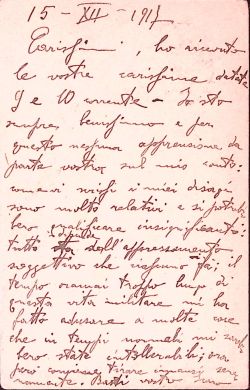 15 - XII - 1917
Carissimi, ho ricevuto
le vostre carissime datate
9 e 10 corrente - Io sto
sempre benissimo e per
questo nessuna apprensione da
parte vostra sul mio conto:
i miei disagi
sono molto relativi e si potreb
bero qualificare insignificanti:
tutto dell'apprezzamento
soggettivo che nessuno fa; il
tempo oramai troppo lungo di
questa vita militare mi ha
fatto adusare a molte cose
che in tempi normali mi sareb
bero state intollerabili; ora
però conviene tirare innanzi sere
namente. Baci vostro